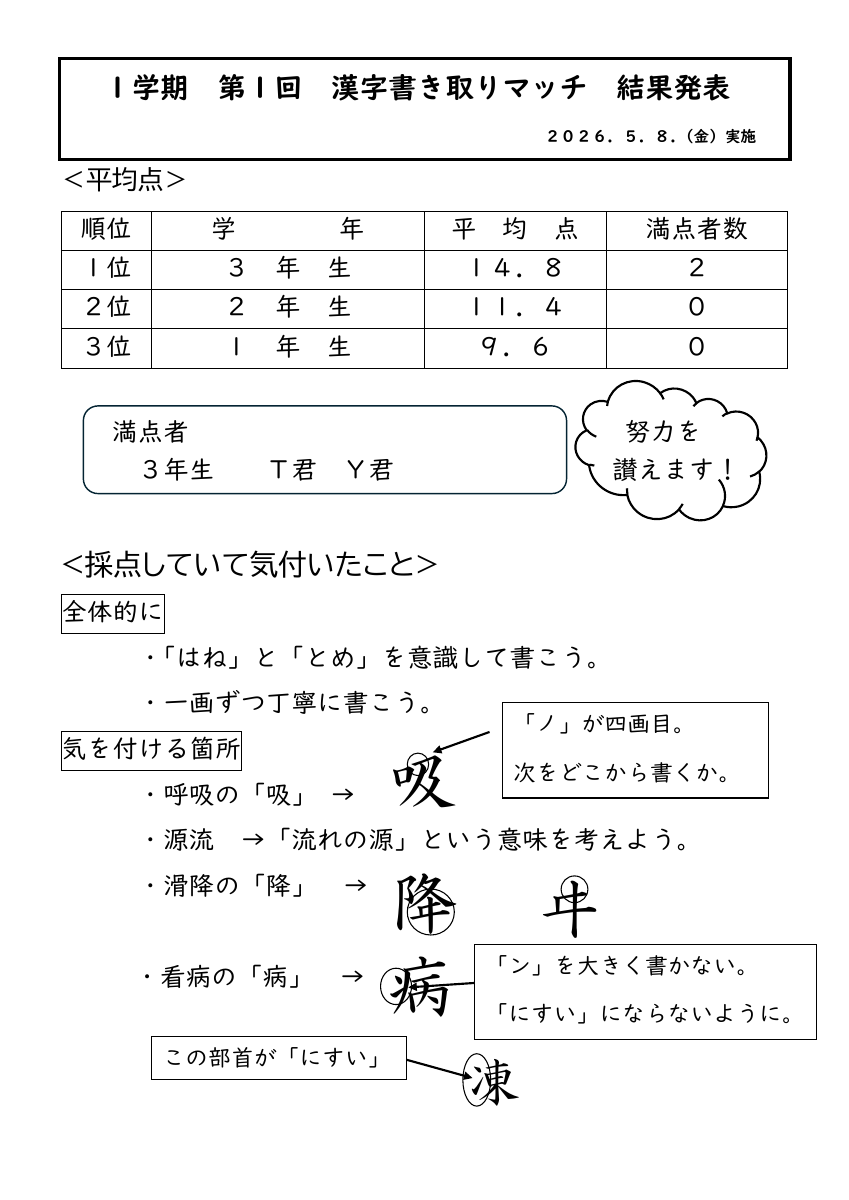 １学期　第１回　漢字書き取りマッチ　結果発表
２０２６．５．８．（金）実施
＜平均点＞
順位　学　年　平　均　点　満点者数
１位　３　年　生　１４．８　２
２位　２　年　生　１１．４　０
３位　１　年　生　９．６　０
満点者
３年生　　Ｔ君　Ｙ君
努力を
讃えます！
＜採点していて気付いたこと＞
全体的に
・「はね」と「とめ」を意識して書こう。
・一画ずつ丁寧に書こう。
気を付ける箇所
「ノ」が四画目。
次をどこから書くか。
・呼吸の「吸」　→　吸
・源流　→「流れの源」という意味を考えよう。
・滑降の「降」　→　降　㐄
・看病の「病」　→　病
「ン」を大きく書かない。
「にすい」にならないように。
この部首が「にすい」
凍